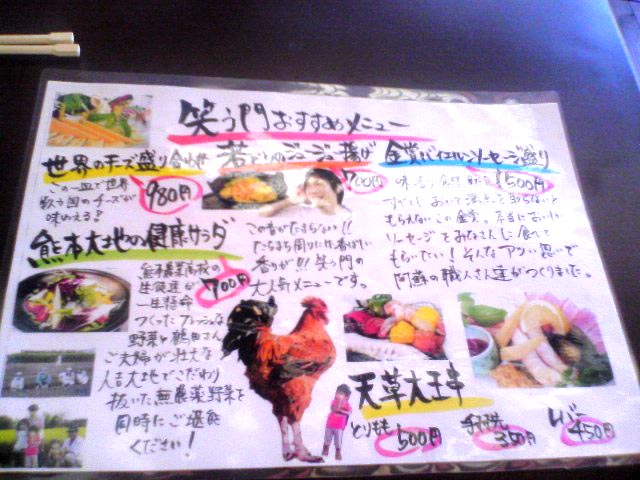 笑う門おすすめメニュー
世界のチーズ盛り合わせ
980円
この一皿で世界
数ヶ国のチーズが
味わえる?
若どりのジュージュー揚げ
700円
この音がたまらない!!
たちまち周りに香ばしい
香りが!!! 笑う門の
大人気メニューです。
金賞バイエルンソーセージ盛り
1500円
味、香り、食感
すべてにおいて満点を取らないと
もらえないこの金賞。本当においしい
ソーセージをみなさんに食べて
もらいたい!そんなアツい思いで
阿蘇の職人さん達がつくりました。
熊本大地の健康サラダ
700円
熊本農業高校の
生徒達が
一生懸命
つくったフレッシュな
野菜と熊田さん
ご夫婦が壮大な
人吉大地でこだわり
抜いた無農薬野菜を
同時にご堪能
ください!
天草大王串
とりもも 500円
手羽先 350円
レバー 450円